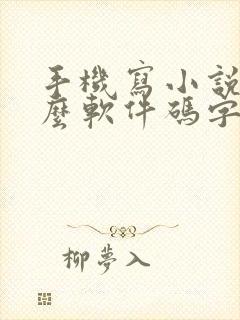 手機寫小說
麼軟件碼字
柳夢入